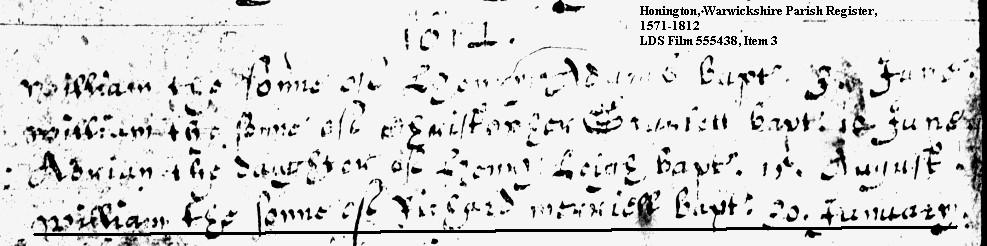 Honington, Warwickshire Parish Register,
1571-1812
LDS Film 555438, Item 3
1612.
William the sonne of Henry Adams bapt. 3. June.
William the sonne of Christopher bapt. June
Adrian the daughter of Henry bapt. August.
William the sonne of Richard Merriell bapt. 20. January.